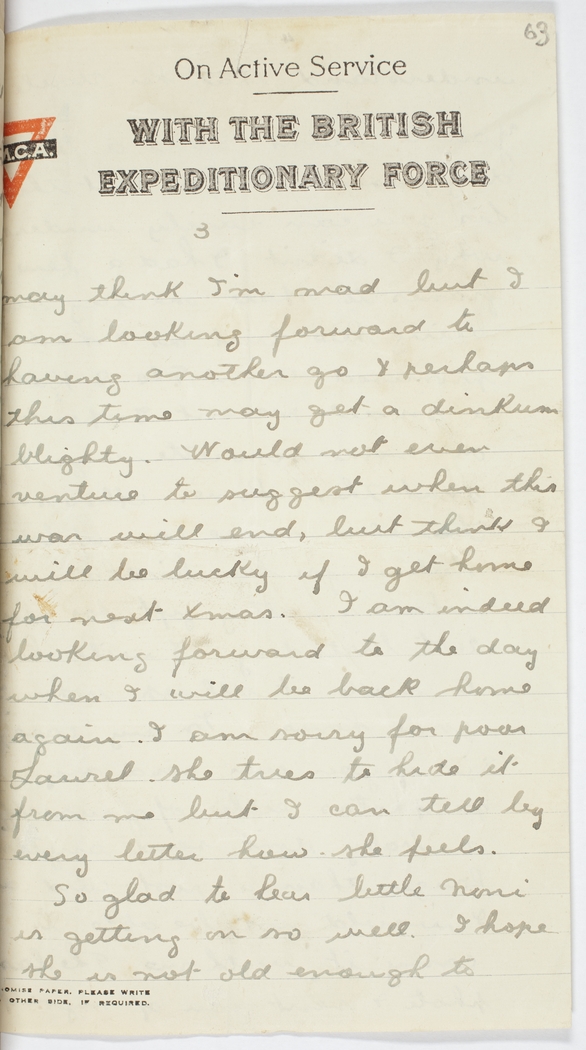 63
On Active Service
WITH THE BRITISH
EXPEDITIONARY FORCE
.C.A.
3
may think I'm mad but I
am looking forward to
having another go & perhaps
this time may get a dinkum
blighty. Would not even
venture to suggest when this
war will end, but think I
will be lucky if I get home
for next Xmas. I am indeed
looking forward to the day
when I will be back home
again. I am sorry for poor
Laurel. she tries to hide it
from me but I can tell by
every letter how she feels.
So glad to hear little Noni
is getting on so well. I hope
she is not old enough to
OMISE PAPER, PLEASE WRITE
OTHER SIDE, IF REQUIRED.